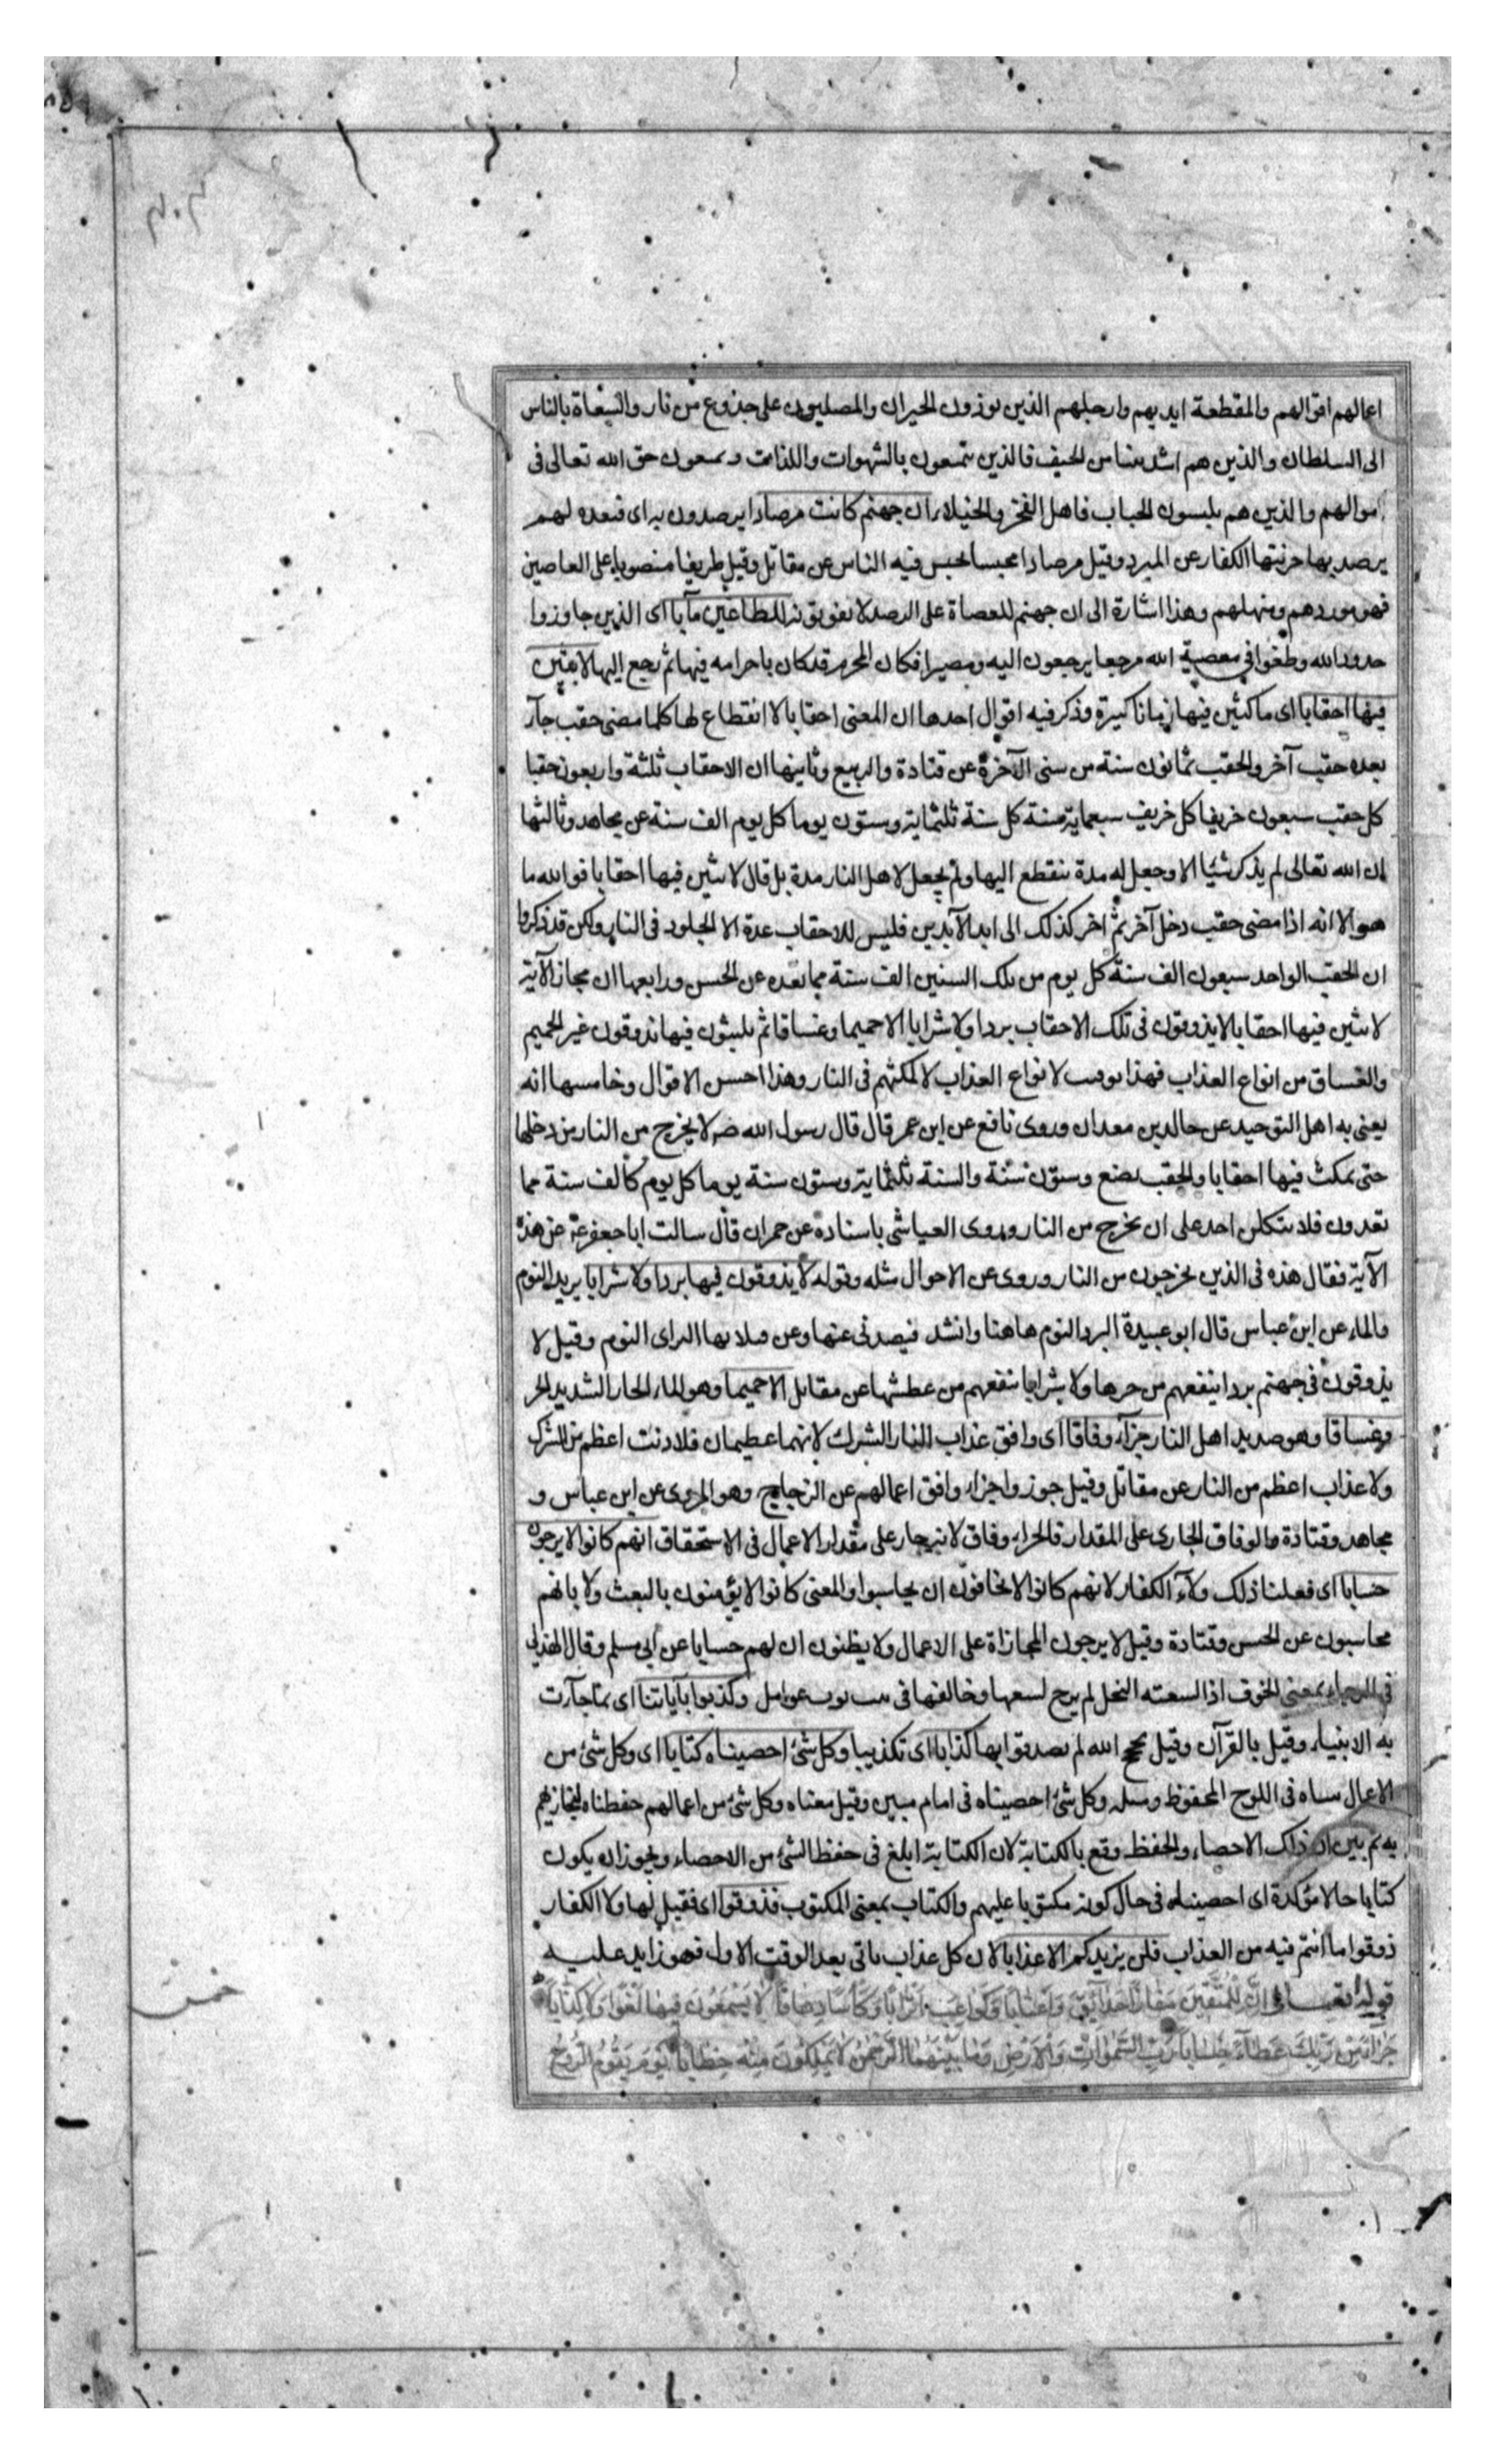 اعمالهم اقوالهم والمقطعة ايديهم وارجلهم الذين يوذون الجيران والمصلبون على جذوع من نار والسعاة بالناس
الى السلطان والذين هم اشد نتنا من الجيف فالذين يتمتعون بالشهوات واللذات ويمنعون حق الله تعالى فى
اموالهم والذين هم يلبسون الجباب فاهل الفخر والخيلاء ان جهنم كانت مرصادا يرصدون به اى فبعده لهم
يرصد بها خزنتها الكفار عن المبرد وقيل مرصادا محبسا يحبس فيه الناس عن مقاتل وقيل طريقا منصوبا على العاصين
فهو موردهم ومنهلهم وهذا اشارة الى ان جهنم للعصاة على الرصد لا يفوتونه للطاغين مآبا اى الذين جاوزوا
حدود الله وطغوا فى معصية الله مرجعا يرجعون اليه ومصيرا فكان المجرم قد كان باجرامه فيها ثم رجع اليها لابثين
فيها احقابا اى ماكثين فيها ازمانا كثيرة وذكر فيه اقوال احدها ان المعنى احقابا لا انقطاع لها كلما مضى حقب جآء
بعده حقب آخر والحقب ثمانون سنة من سنى الآخرة عن قتادة والربيع وثانيها ان الاحقاب ثلثة واربعون حقبا
كل حقب سبعون خريفا كل خريف سبعماية سنة كل سنة ثلثماية وستون يوما كل يوم الف سنة عن مجاهد وثالثها
ان الله تعالى لم يذكر شيئا الا وجعل له مدة ينقطع اليها ولم يجعل لاهل النار مدة بل قال لابثين فيها احقابا فوالله ما
هو الا انه اذا مضى حقب دخل آخر ثم اخر كذلك الى ابد الآبدين فليس للاحقاب عدة الا الخلود فى النار ولكن قد ذكروا
ان الحقب الواحد سبعون الف سنة كل يوم من تلك السنين الف سنة مما نعده عن الحسن ورابعها ان مجاز الآية
لابثين فيها احقابا لا يذوقون فى تلك الاحقاب بردا ولا شرابا الا حميما وغساقا ثم يلبثون فيها يذوقون غير الحميم
والغساق من انواع العذاب فهذا توقيت لانواع العذاب لا لمكثهم فى النار وهذا احسن الاقوال وخامسها انه
يعنى به اهل التوحيد عن خالد بن معدان وروى نافع عن ابن عمر قال قال رسول الله صه لا يخرج من النار من دخلها
حتى يمكث فيها احقابا والحقب بضع وستون سنة والسنة ثلثماية وستون سنة يوما كل يوم كالف سنة مما
تعدون فلا يتكلن احد على ان يخرج من النار وروى العياشى باسناده عن حمران قال سالت ابا جعفر ع عن هذه
الآية فقال هذه فى الذين يخرجون من النار وروى عن الاحوال مثله وقوله لا يذوقون فيها بردا ولا شرابا يريد النوم
والماء عن ابن عباس قال ابو عبيدة البرد النوم هاهنا وانشد فيصدنى عنها وعن قبلاتها البرد اى النوم وقيل لا
يذوقون فى جهنم بردا ينفعهم من حرها ولا شرابا ينفعهم من عطشها عن مقاتل الا حميما وهو الماء الحار الشديد الحر
وغساقا وهو صديد اهل النار جزآء وفاقا اى وافق عذاب النار الشرك لانهما عظيمان فلا ذنب اعظم من الشرك
ولا عذاب اعظم من النار عن مقاتل وقيل جوزوا جزاء وافق اعمالهم عن الزجاج وهو المروى عن ابن عباس و
مجاهد وقتادة والوفاق الجارى على المقدار فالجزاء وفاق لانه جار على مقدار الاعمال فى الاستحقاق انهم كانوا لا يرجون
حسابا اى فعلنا ذلك بهولآء الكفار لانهم كانوا لا يخافون ان يحاسبوا والمعنى كانوا لا يؤمنون بالبعث ولا بانهم
محاسبون عن الحسن وقتادة وقيل لا يرجون المجازاة على الاعمال ولا يظنون ان لهم حسابا عن ابى مسلم وقال الهذلى
فى الرجاء بمعنى الخوف اذا لسعته النحل لم يرج لسعها وخالفها فى بيت نوب عوامل وكذبوا بآياتنا اى بما جآءت
به الانبياء وقيل بالقرآن وقيل بحجج الله لم يصدقوا بها كذابا اى تكذيبا وكل شئ احصيناه كتابا اى وكل شئ من
الاعمال بيناه فى اللوح المحفوظ ومثله وكل شئ احصيناه فى امام مبين وقيل معناه وكل شئ من اعمالهم حفظناه لنجازيهم
به ثم بين ان ذلك الاحصاء والحفظ وقع بالكتابة لان الكتابة ابلغ فى حفظ الشئ من الاحصاء ويجوز ان يكون
كتابا حالا مؤكدة اى احصيناه فى حال كونه مكتوبا عليهم والكتاب بمعنى المكتوب فذوقوا اى فقيل لهولا الكفار
ذوقوا ما انتم فيه من العذاب فلن يزيدكم الا عذابا لان كل عذاب ياتى بعد الوقت الاول فهو زايد عليه
قوله تعالى اِنَّ لِلْمُتَّقينَ مَفازًا حَدآئِقَ وَاَعْنابًا وَكَواعِبَ اَتْرابًا وَكَأْسًا دِهاقًا لا يَسْمَعُونَ فيها لَغْوًا وَلا كِذّابًا
جَزآءً مِنْ رَبِّكَ عَطآءً حِسابًا رَبِّ السَّمٰواتِ وَالْاَرْضِ وَما بَيْنَهُمَا الرَّحْمٰنِ لا يَمْلِكُونَ مِنْهُ خِطابًا يَوْمَ يَقُومُ الرُّوحُ